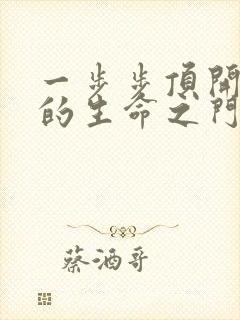 一步步頂開
的生命之門
蔡酒哥